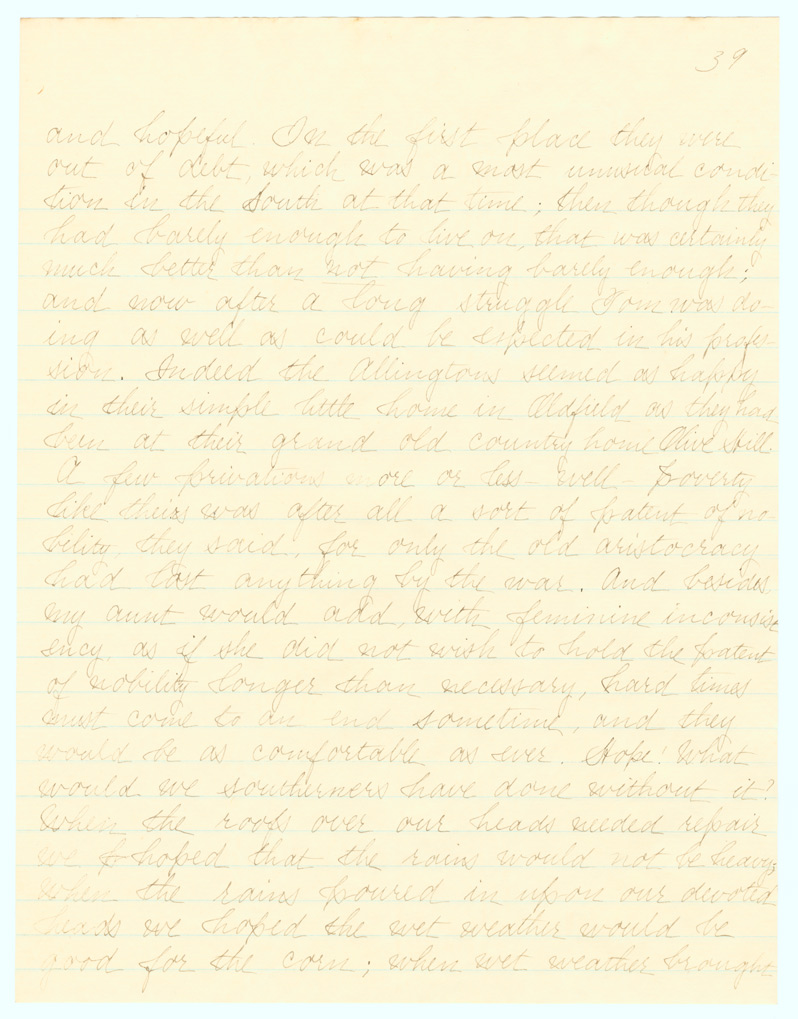 39
and hopeful. In the first place they were
out of debt, which was a most unusual condi-
tion in the South at that time; then though they
had barely enough to live on, that was certainly
much better than not having barely enough;
and now after a long struggle Tom was do-
ing as well as could be expected in his profes-
sion. Indeed the Allingtons seemed as happy
in their simple little home in Oldfield as they had
been at their grand old country home Olive Hill.
A few privations more or less — well — poverty
like theirs was after all a sort of patent of no-
bility, they said, for only the old aristocracy
had lost anything by the war. And besides,
my aunt would add, with feminine inconsist
ency, as if she did not wish to hold the patent
of nobility longer than necessary, hard times
must come to an end sometime, and they
would be as comfortable as ever. Hope! What
would we southerners have done without it?
When the roofs over our heads needed repair
we hoped that the rains would not be heavy;
when the rains poured in upon our devoted
heads we hoped the wet weather would be
good for the corn; when wet weather brought